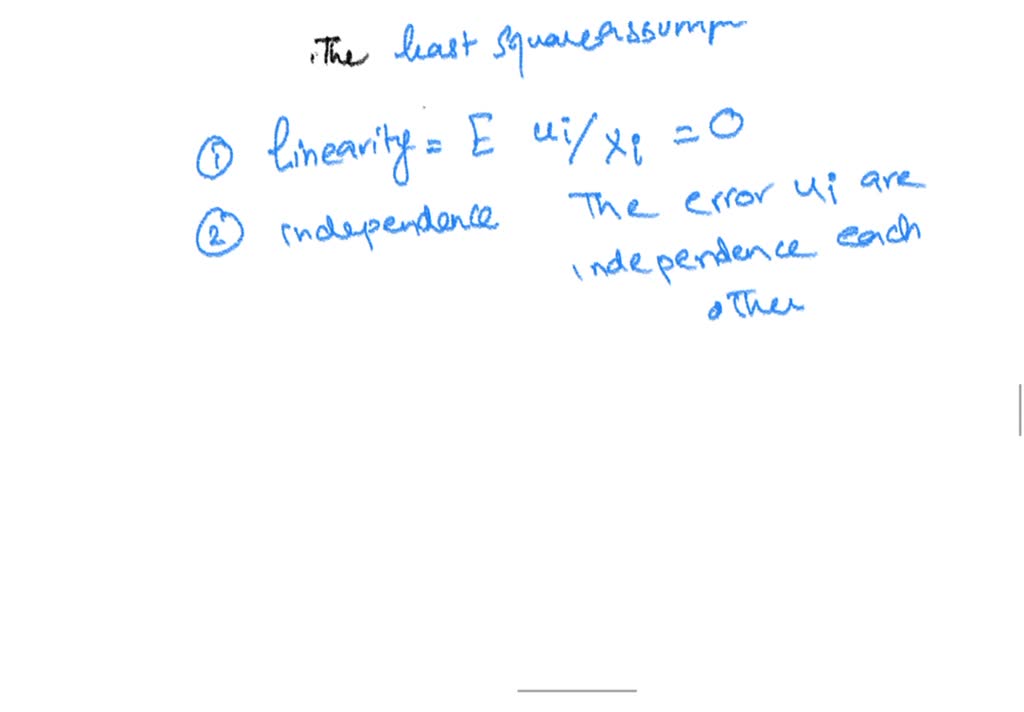 The least square Assump
① linearity = E ui/xi = 0
② independence The error ui are
independence each
other